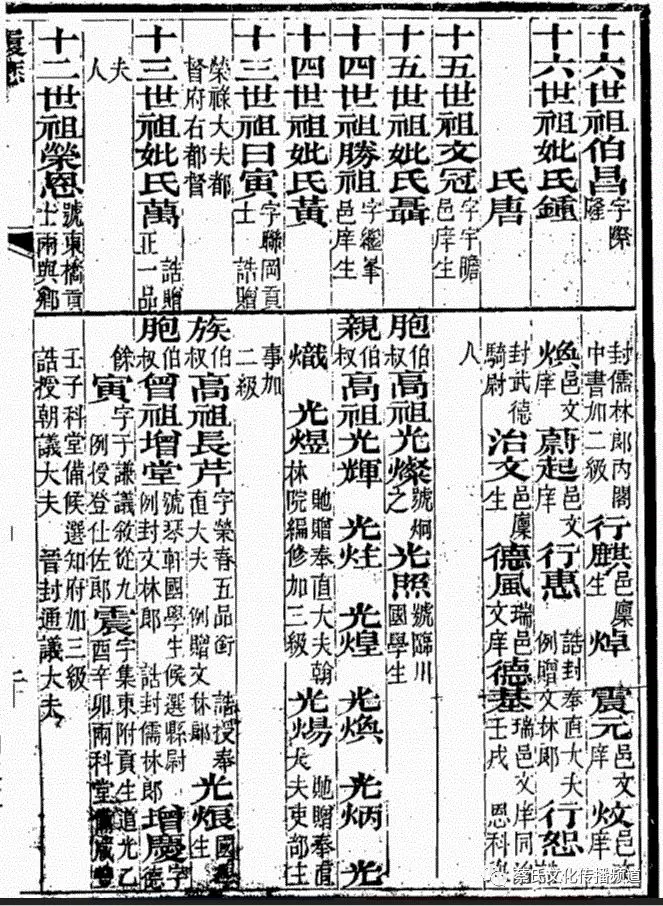 十六世祖伯昌字際隆
十六世祖妣氏鍾
氏唐
十五世祖文冠字宇瞻邑庠生
十五世祖妣氏聶
十四世祖勝祖字繼峯邑庠生
十四世祖妣氏黃
十三世祖曰寅字聯岡貢士 誥贈
榮祿大夫都督府右都督
十三世祖妣氏萬誥贈正一品
夫人
十二世祖榮恩號東橋貢士兩與鄉
封儒林郎內閣中書加二級 行麒邑廩生 焯 震元邑文庠
煥邑文庠 蔚起邑文庠 行惠誥封奉直大夫例贈文林郎 行恕
封武德騎尉 治文邑廩生 德風瑞邑文庠 德基瑞邑文庠同治壬戌恩科
人
胞伯叔高祖光燦號炯之 光照號臨川國學生
親伯叔高祖光輝 光炷 光煌 光煥 光炳 光
熾 光煜貤贈奉直大夫翰林院編修加三級 光煬貤贈奉直大夫吏部主
事加二級
族伯叔高祖長芹字榮春五品銜 誥授奉直大夫 例贈文林郎 光烺國學生
胞伯叔曾祖增堂號琴軒國學生候選縣尉 例封文林郎 誥封儒林郎 增慶字德
餘 寅字于謙議敘從九例授登仕佐郎 震字集東附貢生道光乙酉辛卯兩科堂備咸豐
壬子科堂備候選知府加三級
誥授朝議大夫 晉封通議大夫
蔡氏文化传播频道